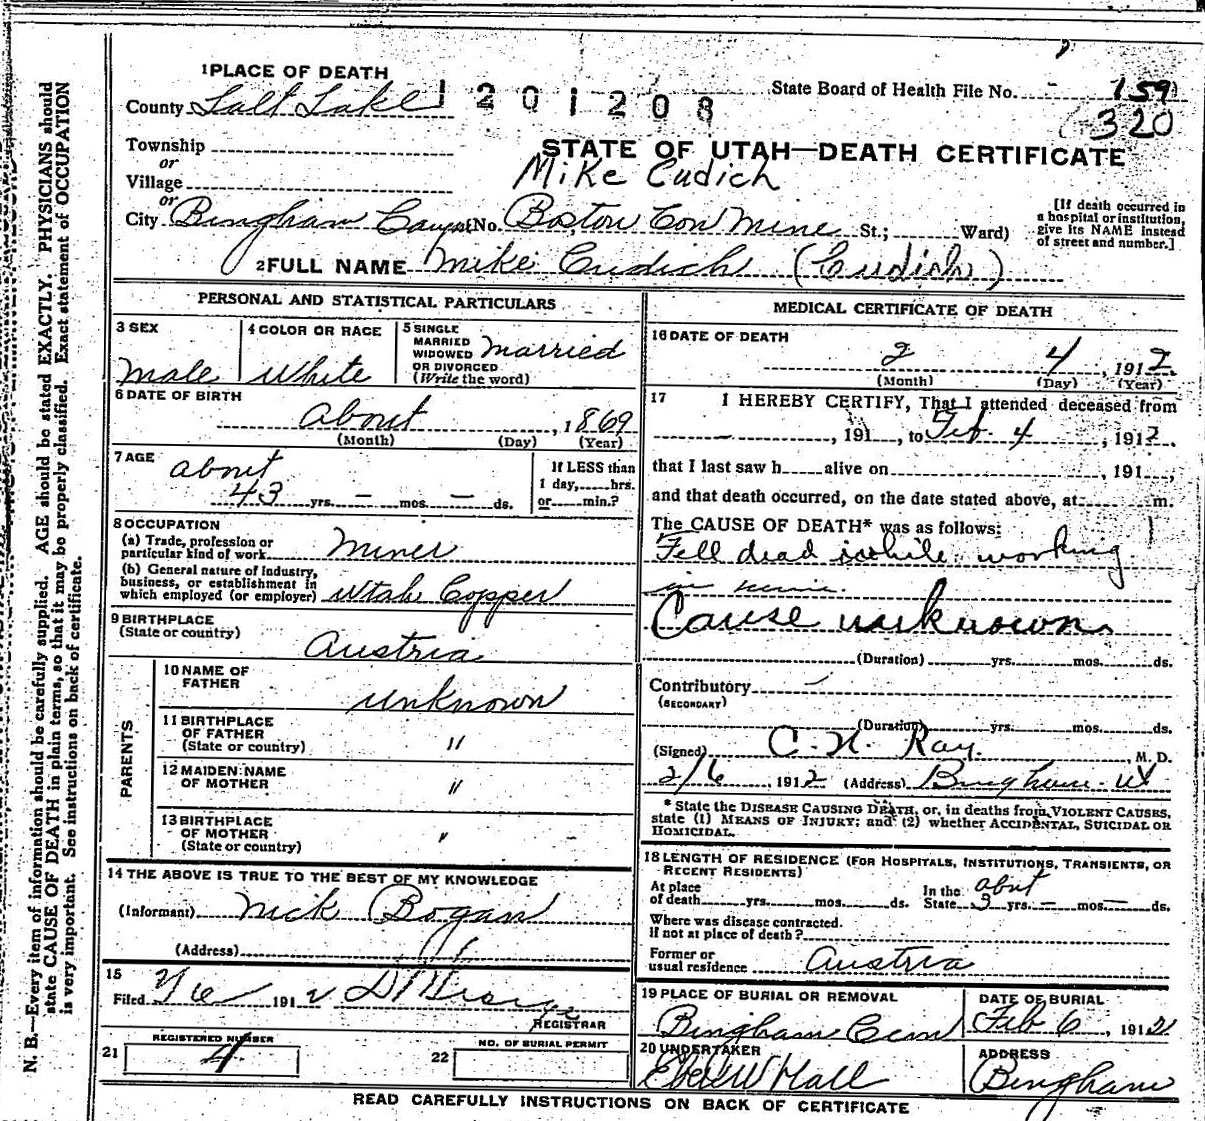 N. B.—Every item of information should be carefully supplied. AGE should be stated EXACTLY. PHYSICIANS should
state CAUSE OF DEATH in plain terms, so that it may be properly classified. Exact statement of OCCUPATION
is very important. See instructions on back of certificate.
1 PLACE OF DEATH
County Salt Lake 1201208
State Board of Health File No. 159
320
Township
or
Village
or
STATE OF UTAH—DEATH CERTIFICATE
Mike Cudich
City Bingham Canyon (No. Boston Con Mine St.; Ward)
[If death occurred in
a hospital or institution,
give its NAME instead
of street and number.]
2 FULL NAME Mike Cudich (Cudich)
PERSONAL AND STATISTICAL PARTICULARS
3 SEX
Male
4 COLOR OR RACE
White
5 SINGLE
MARRIED
WIDOWED
OR DIVORCED
(Write the word)
Married
6 DATE OF BIRTH
about , 1869
(Month) (Day) (Year)
7 AGE
about
43 yrs. — mos. — ds.
If LESS than
1 day, hrs.
or min.?
8 OCCUPATION
(a) Trade, profession or
particular kind of work Miner
(b) General nature of industry,
business, or establishment in
which employed (or employer) Utah Copper
9 BIRTHPLACE
(State or country) Austria
PARENTS
10 NAME OF
FATHER unknown
11 BIRTHPLACE
OF FATHER
(State or country) "
12 MAIDEN NAME
OF MOTHER "
13 BIRTHPLACE
OF MOTHER
(State or country) "
14 THE ABOVE IS TRUE TO THE BEST OF MY KNOWLEDGE
(Informant) Nick Bogan
(Address)
15
Filed 2/6 1912
REGISTRAR
21 REGISTERED NUMBER
4
22 NO. OF BURIAL PERMIT
MEDICAL CERTIFICATE OF DEATH
16 DATE OF DEATH
2 4 , 1912
(Month) (Day) (Year)
17 I HEREBY CERTIFY, That I attended deceased from
— , 191 , to Feb. 4 , 1912.
that I last saw h alive on , 191 ,
and that death occurred, on the date stated above, at m.
The CAUSE OF DEATH* was as follows:
Fell dead while working
in mine.
Cause unknown
(Duration) yrs. mos. ds.
Contributory —
(SECONDARY)
(Duration) yrs. mos. ds.
(Signed) C. N. Ray. , M. D.
2/6 , 1912 (Address) Bingham Ut
* State the DISEASE CAUSING DEATH, or, in deaths from VIOLENT CAUSES,
state (1) MEANS OF INJURY; and (2) whether ACCIDENTAL, SUICIDAL OR
HOMICIDAL.
18 LENGTH OF RESIDENCE (FOR HOSPITALS, INSTITUTIONS, TRANSIENTS, OR
RECENT RESIDENTS)
At place
of death yrs. mos. ds.
In the
State abut 3 yrs. — mos. — ds.
Where was disease contracted.
If not at place of death?
Former or
usual residence Austria
19 PLACE OF BURIAL OR REMOVAL
Bingham Cem
DATE OF BURIAL
Feb 6 , 1912
20 UNDERTAKER
Eber W Hall
ADDRESS
Bingham
READ CAREFULLY INSTRUCTIONS ON BACK OF CERTIFICATE